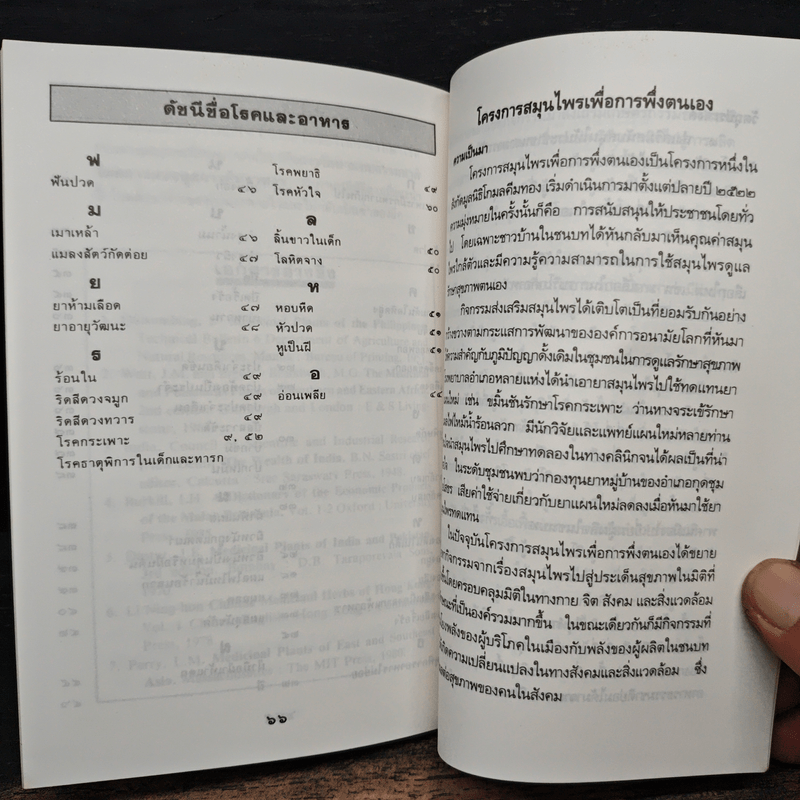 ดัชนีชื่อโรคและอาหาร
ฟ
ฟันปวด ๔๖
ม
เมาเหล้า ๔๖
แมลงสัตว์กัดต่อย ๔๗
ย
ยาห้ามเลือด ๔๗
ยาอายุวัฒนะ ๔๘
ร
ร้อนใน ๔๙
ริดสีดวงจมูก ๔๙
ริดสีดวงทวาร ๔๙
โรคกระเพาะ ๙, ๕๒
โรคธาตุพิการในเด็กและทารก
โรคพยาธิ ๔๙
โรคหัวใจ ๖๐
ล
ลิ้นขาวในเด็ก ๕๐
โลหิตจาง ๕๐
ห
หอบหืด ๕๑
หัวปวด ๕๑
หูเป็นฝี ๕๑
อ
อ่อนเพลีย ๔๔
๖๖
โครงการสมุนไพรเพื่อการพึ่งตนเอง
ความเป็นมา
โครงการสมุนไพรเพื่อการพึ่งตนเองเป็นโครงการหนึ่งใน
สังกัดมูลนิธิโกมลคีมทอง เริ่มดำเนินการมาตั้งแต่ปลายปี ๒๕๒๒
ความมุ่งหมายในครั้งนั้นก็คือ การสนับสนุนให้ประชาชนโดยทั่ว
ไป โดยเฉพาะชาวบ้านในชนบทได้หันกลับมาเห็นคุณค่าสมุน
ไพรใกล้ตัวและมีความรู้ความสามารถในการใช้สมุนไพรดูแล
รักษาสุขภาพตนเอง
กิจกรรมส่งเสริมสมุนไพรได้เติบโตเป็นที่ยอมรับกันอย่าง
กว้างขวางตามกระแสการพัฒนาขององค์การอนามัยโลกที่หันมา
ให้ความสำคัญกับภูมิปัญญาดั้งเดิมในชุมชนในการดูแลรักษาสุขภาพ
โรงพยาบาลอำเภอหลายแห่งได้นำเอายาสมุนไพรไปใช้ทดแทนยา
แผนใหม่ เช่น ขมิ้นชันรักษาโรคกระเพาะ ว่านหางจระเข้รักษา
แผลไฟไหม้น้ำร้อนลวก มีนักวิจัยและแพทย์แผนใหม่หลายท่าน
ได้นำสมุนไพรไปศึกษาทดลองในทางคลินิกจนได้ผลเป็นที่น่า
ในระดับชุมชนพบว่ากองทุนยาหมู่บ้านของอำเภอกุดชุม
เสียค่าใช้จ่ายเกี่ยวกับยาแผนใหม่ลดลงเมื่อหันมาใช้ยา
สมุนไพรทดแทน
ในปัจจุบันโครงการสมุนไพรเพื่อการพึ่งตนเองได้ขยาย
กิจกรรมจากเรื่องสมุนไพรไปสู่ประเด็นสุขภาพในมิติที่
โดยครอบคลุมมิติในทางกาย จิต สังคม และสิ่งแวดล้อม
ที่เป็นองค์รวมมากขึ้น ในขณะเดียวกันก็มีกิจกรรมที่
พลังของผู้บริโภคในเมืองกับพลังของผู้ผลิตในชนบท
ความเปลี่ยนแปลงในทางสังคมและสิ่งแวดล้อม ซึ่ง
สุขภาพของคนในสังคม